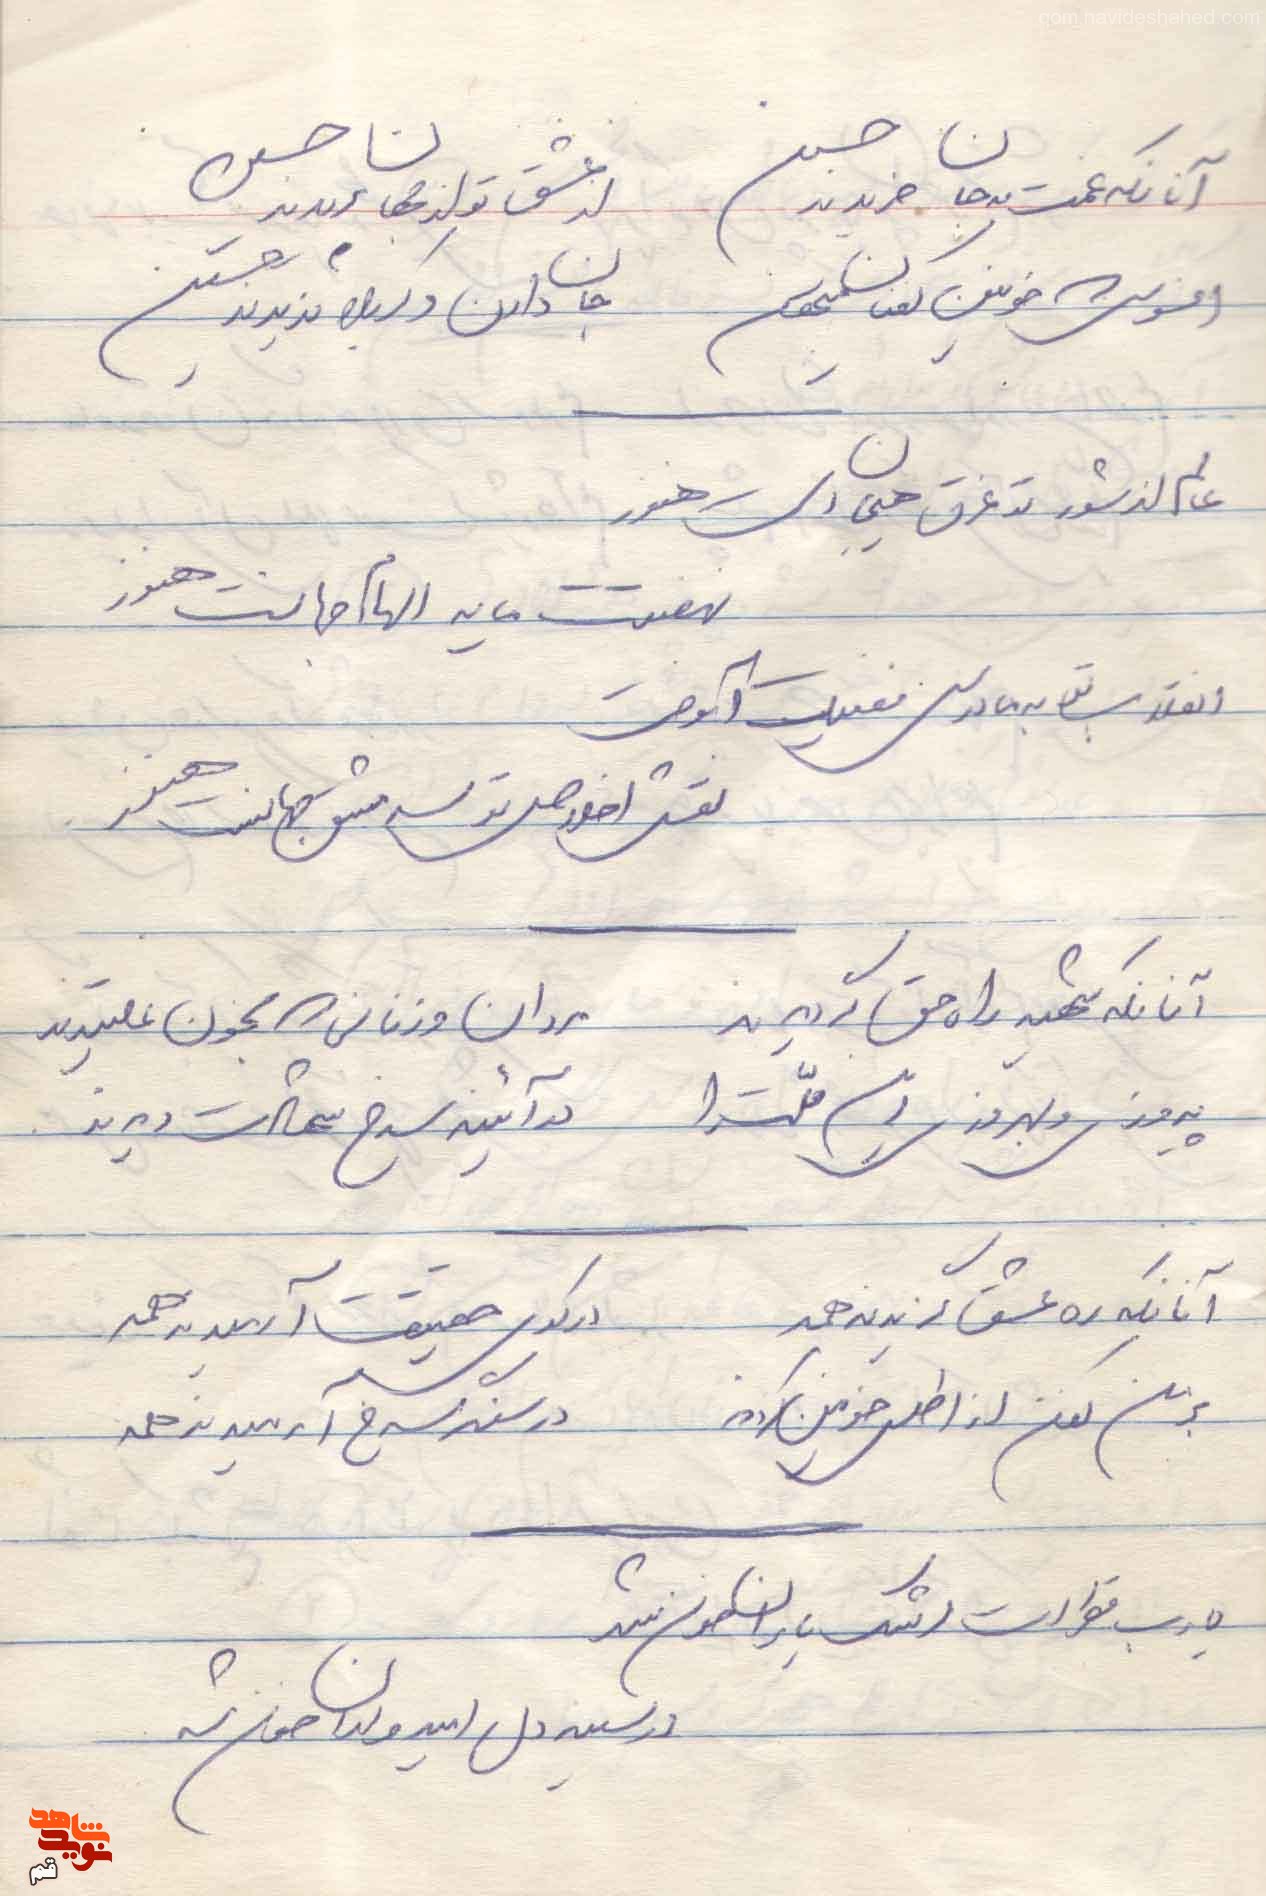 qom.navideshahed.com
آنانکه غمت به جان خریدند حسین از عشق تو از جهان بریدند حسین
افسوس که خونین کفنان جان دادن و کربلا ندیدند حسین
عالم از شور تو غرق هیجان است هنوز
نهضتت مایه الهام جهانست هنوز
انقلاب تو به ما درس فضیلت آموخت
نقش اخلاص تو سرمشق جهانست هنوز
آنانکه شهید راه حق گردیدند مردان و زنانی که بخون غلتیدند
پیروزی و بهروزی این ملّت را در آئینه سرخ شهادت دیدند
آنانکه ره عشق گزیدند همه در کوی حقیقت آرمیدند همه
بر تن کفن از اطلس خونین کردند در سنگر سرخ آرمیدند همه
یارب قطرات اشک یاران خون شد
در سینه دل امیدواران خون شد
نوید شاهد
قم